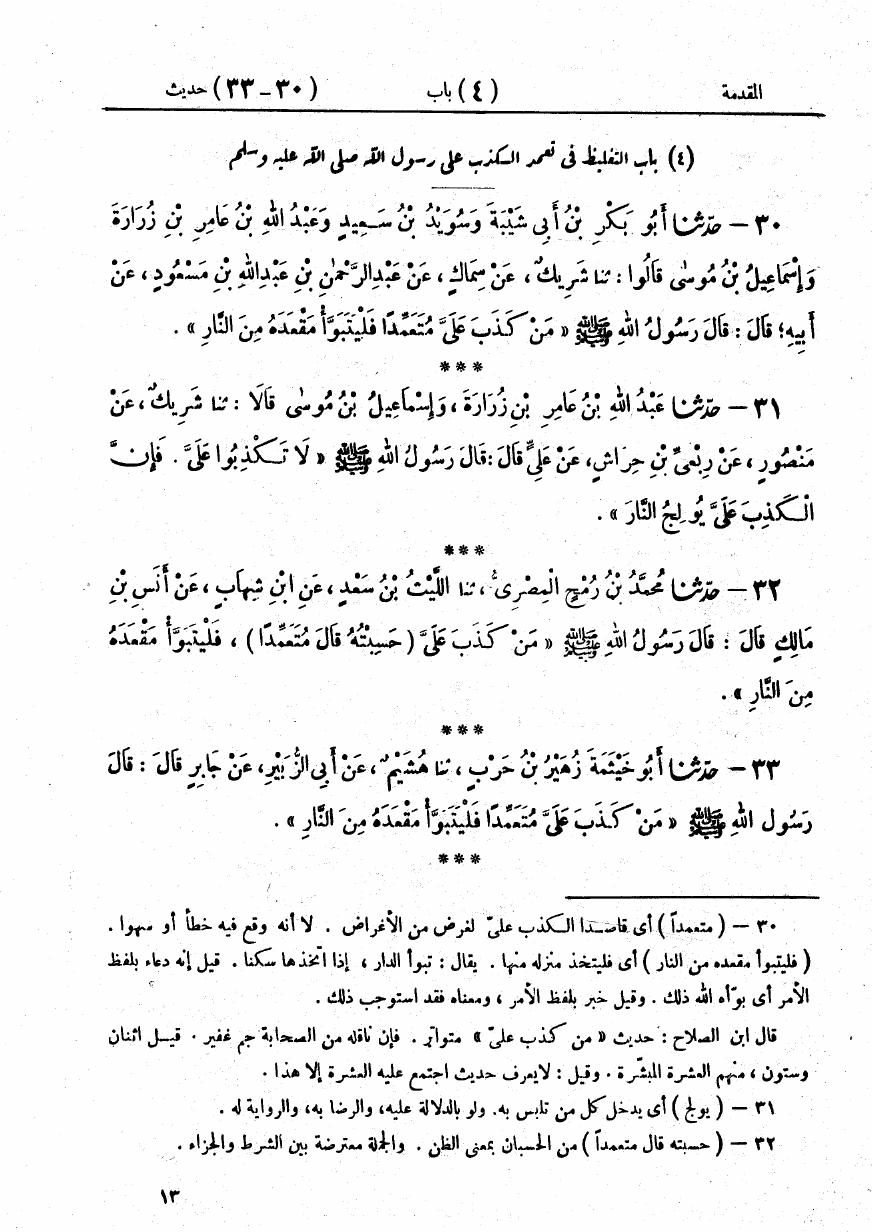 المقدمة (٤) باب (٣٠-٣٣) حديث
(٤) باب التغليظ فى تعمد الكذب على رسول الله صلى الله عليه وسلم
٣٠ — حدّثنا أَبُو بَكْرِ بْنُ أَبِى شَيْبَةَ وَسُوَيْدُ بْنُ سَعِيدٍ وَعَبْدُ اللهِ بْنُ عَامِرِ بْنِ زُرَارَةَ
وَإِسْمَاعِيلُ بْنُ مُوسَى قَالُوا : ثنا شَرِيكٌ، عَنْ سِمَاكٍ، عَنْ عَبْدِالرَّحْمٰنِ بْنِ عَبْدِاللهِ بْنِ مَسْعُودٍ، عَنْ
أَبِيهِ؛ قَالَ : قَالَ رَسُولُ اللهِ ﷺ « مَنْ كَذَبَ عَلَىَّ مُتَعَمِّدًا فَلْيَتَبَوَّأْ مَقْعَدَهُ مِنَ النَّارِ » .
***
٣١ — حدّثنا عَبْدُ اللهِ بْنُ عَامِرِ بْنِ زُرَارَةَ، وَإِسْمَاعِيلُ بْنُ مُوسَى قَالَا : ثنا شَرِيكٌ، عَنْ
مَنْصُورٍ، عَنْ رِبْعِىِّ بْنِ حِرَاشٍ، عَنْ عَلِىٍّ قَالَ : قَالَ رَسُولُ اللهِ ﷺ « لَا تَكْذِبُوا عَلَىَّ . فَإِنَّ
الْكَذِبَ عَلَىَّ يُولِجُ النَّارَ » .
***
٣٢ — حدّثنا مُحَمَّدُ بْنُ رُمْحٍ الْمِصْرِىُّ، ثنا اللَّيْثُ بْنُ سَعْدٍ، عَنِ ابْنِ شِهَابٍ، عَنْ أَنَسِ بْنِ
مَالِكٍ قَالَ : قَالَ رَسُولُ اللهِ ﷺ « مَنْ كَذَبَ عَلَىَّ (حَسِبْتُهُ قَالَ مُتَعَمِّدًا) ، فَلْيَتَبَوَّأْ مَقْعَدَهُ
مِنَ النَّارِ » .
***
٣٣ — حدّثنا أَبُو خَيْثَمَةَ زُهَيْرُ بْنُ حَرْبٍ، ثنا هُشَيْمٌ، عَنْ أَبِى الزُّبَيْرِ، عَنْ جَابِرٍ قَالَ : قَالَ
رَسُولُ اللهِ ﷺ « مَنْ كَذَبَ عَلَىَّ مُتَعَمِّدًا فَلْيَتَبَوَّأْ مَقْعَدَهُ مِنَ النَّارِ » .
***
٣٠ — (متعمداً) أى قاصدا الكذب علىّ لغرض من الأغراض . لا أنه وقع فيه خطأ أو سهوا .
(فليتبوأ مقعده من النار) أى فليتخذ منزله منها . يقال : تبوأ الدار ، إذا اتخذها سكنا . قيل إنه دعاء بلفظ
الأمر أى بوّأه الله ذلك . وقيل خبر بلفظ الأمر ، ومعناه فقد استوجب ذلك .
قال ابن الصلاح : حديث « من كذب علىّ » متواتر . فإن ناقله من الصحابة جم غفير . قيل اثنان
وستون ، منهم العشرة المبشّرة . وقيل : لايعرف حديث اجتمع عليه العشرة إلا هذا .
٣١ — (يولج) أى يدخل كل من تلبس به. ولو بالدلالة عليه، والرضا به، والرواية له .
٣٢ — (حسبته قال متعمداً) من الحسبان بمعنى الظن . والجملة معترضة بين الشرط والجزاء .
١٣